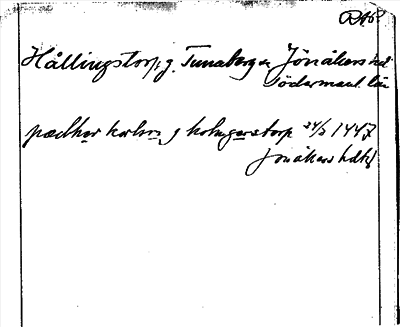 Hållingstorp, g. Tunaberg sn Jönåkers hd
Södermanl. län
pædhor karlsn j holmgerstorp 24/3 1447
Jönåkers hdtf